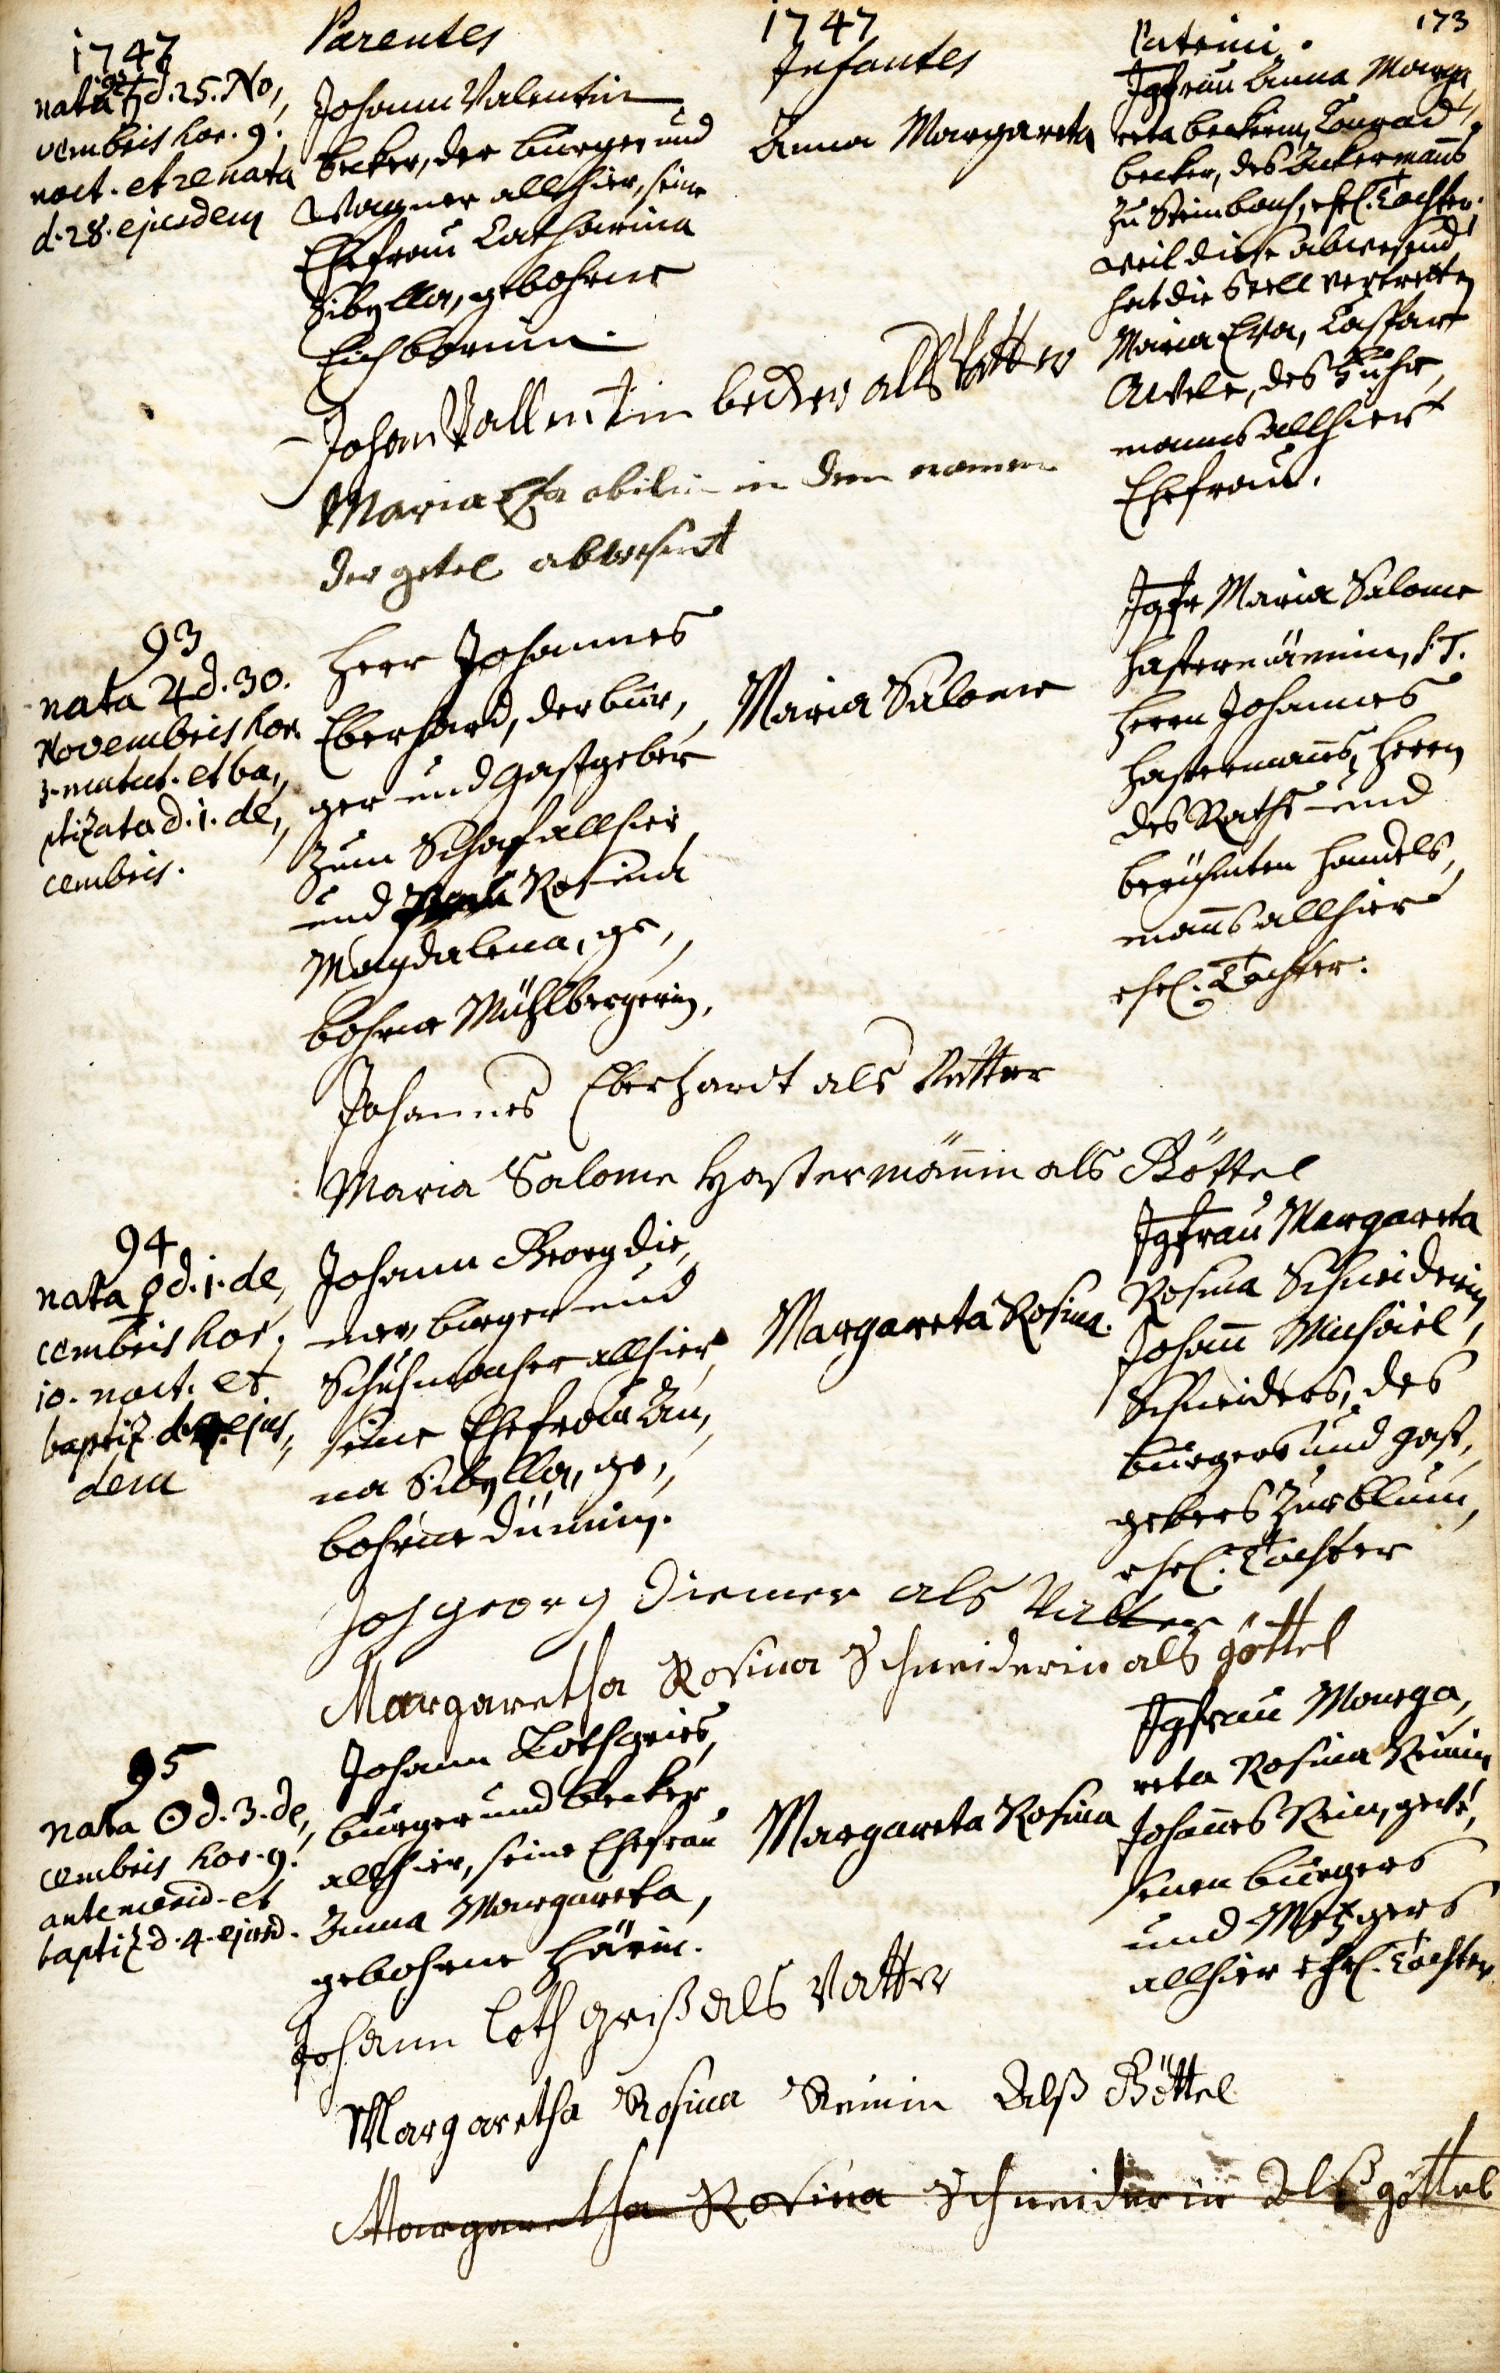 173
1747
Parentes
1747
Infantes
Patrini.
92
nata ♄ d. 25. No,
vembris hor. 9.
noct. et renata
d. 28. ejusdem
Johann Valentin
Becker, der burger und
Wagner allhier, seine
Ehefrau Catharina
Sibylla, gebohrne
Eichbornin.
Anna Margareta
Jgfrau Anna Marga,
reta beckerin, Conrad
becker, des Ackermanns
zu Steinbach, ehel. Tochter.
weil diese abwesend
hat die Stell vertretten
Maria Eva, Caspar
des Fuhr,
manns allhier
Ehefrau.
Johan Vallentin becker alls Vatter
Maria Efa in dem namen
der getel abwesent
93
nata ♃ d. 30.
Novembris hor.
3. matut. et ba,,
ptizata d. 1. de,
cembris.
Herr Johannes
Eberhard, der bur,
ger und Gastgeber
zum Schaf allhier,
und Rosina
Magdalena, ge,,
bohrne Mühlbergerin,
Maria Salome
Jgfr Maria Salome
Hastermännin, S.T.
Herrn Johannes
Hastermanns, Herrn
des Raths und
berühmten Handels,
manns allhier
ehel. Tochter.
Johannes Eberhardt als Vatter
Maria Salome Hastermännin als Göttel
94
nata ♀ d. 1. de,
cembris hor.
10. noct. et
baptiz. d. ejus,,
dem
Johann Georg Die,
mer, burger und
Schuhmacher allhier,
seine Ehefrau An,
na Sibylla, ge,,
bohrne Dümin.
Margareta Rosina.
Jgfrau Margareta
Rosina Schneiderin
Johann Michäel
Schneiders, des
burgers und Gast,
gebers zur blum,
ehel. Tochter
Joh georg Diemer als Vatter
Margaretha Rosina Schneiderin als göttel
95
nata ☉ d. 3. de,
cembris hor. 9.
antemerid. et
baptiz d. 4. ejusd.
Johann Loth gries,
burger und becker
allhier, seine Ehefrau
Anna Margareta,
gebohrne Härin.
Margareta Rosina
Jgfrau Marga,
reta Rosina Reinin
Johannes Rein, gewe,
senen burgers
und Metzgers
allhier ehel. Tochter
Johann Loth Griß als Vatter
Margaretha Rosina Reinin Alß Göttel
Margaretha Rosina Schneiderin Alß göttel